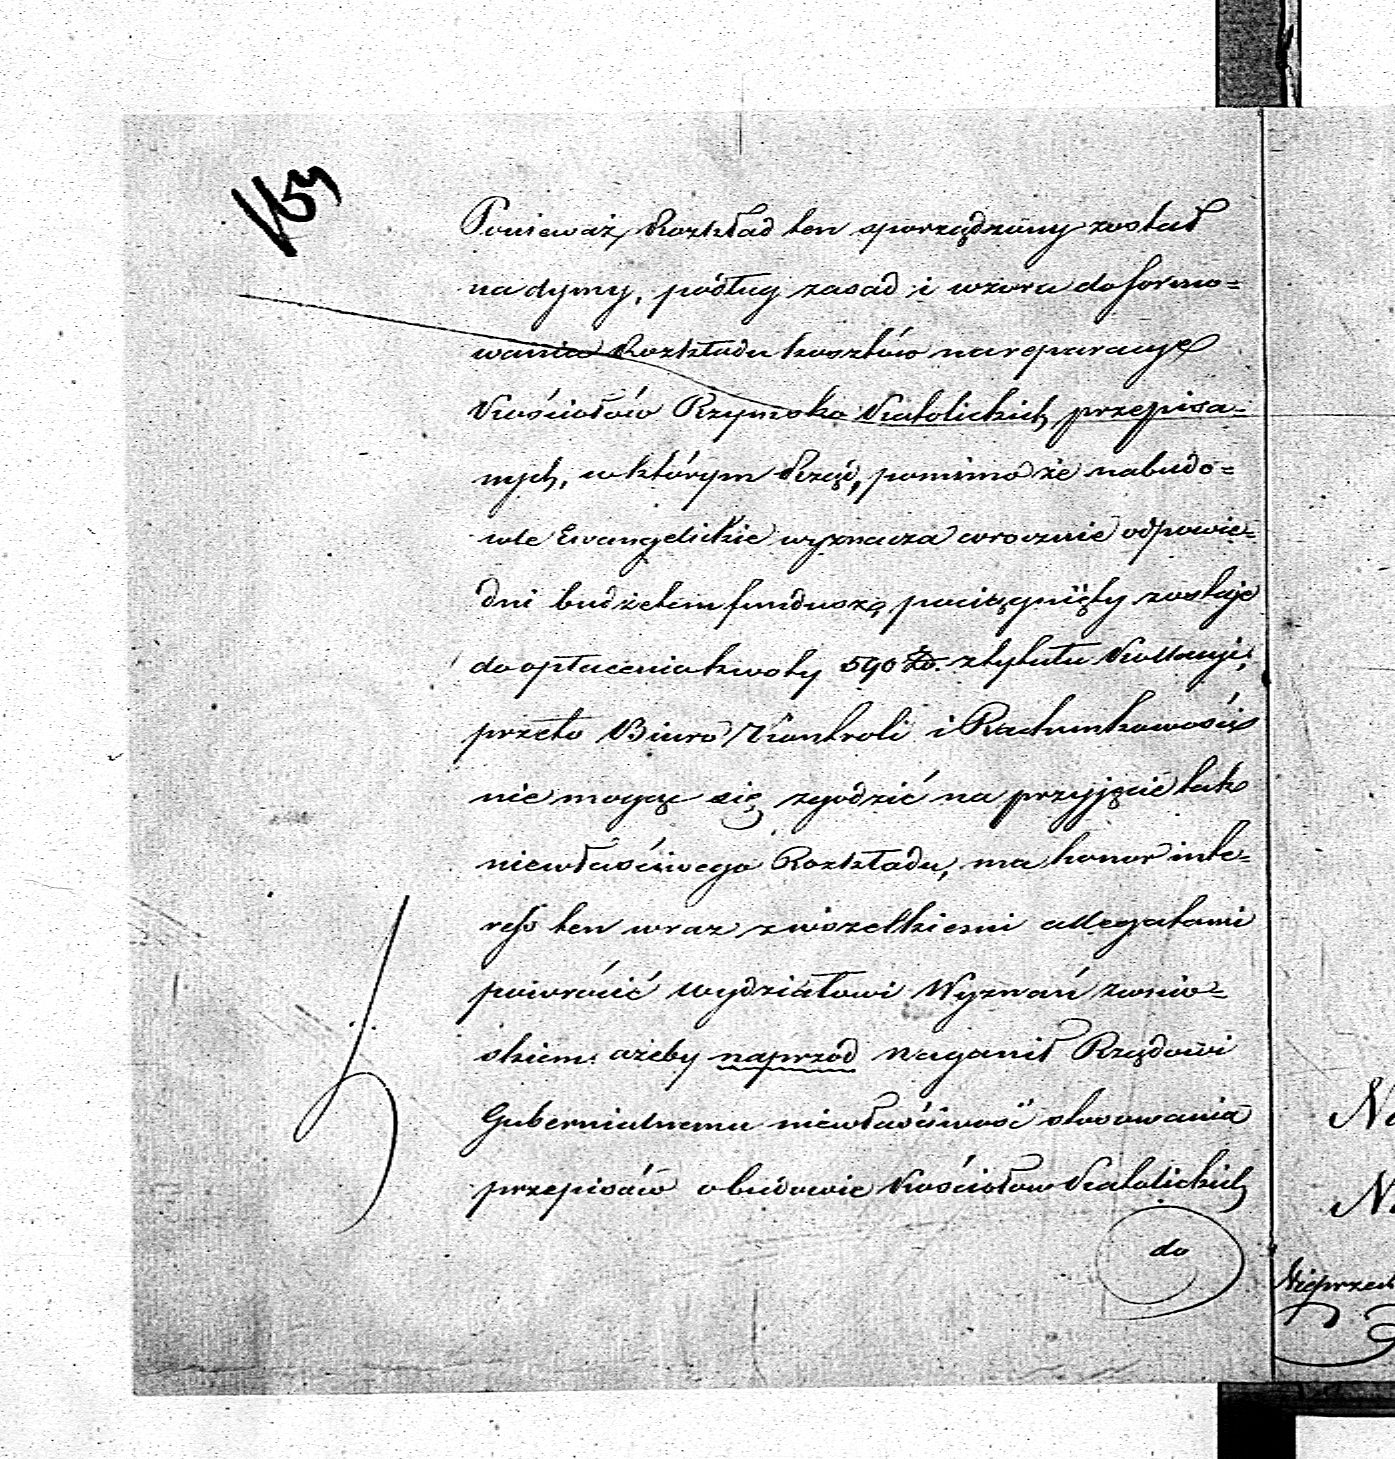 Ponieważ Rozkład ten sporządzony został
na dymy, podług zasad i wzoru do formo=
wania Rozkładu kosztów na reparacye
Kościołów Rzymsko Katolickich przepisa=
nych, w którym Rząd, pomimo że na budo=
wle Ewangelickie wyznacza corocznie odpowie=
dni budżetem fundusz, pociągnięty zostaje
do opłacenia kwoty 590 Zł. z tytułu Kollacyi;
przeto Biuro Kontroli i Rachunkowości
nie mogąc się zgodzić na przyjęcie tak
niewłaściwego Rozkładu, ma honor inte=
ress ten wraz z wszelkiemi allegatami
powrócić Wydziałowi Wyznań z wnio=
skiem: ażeby naprzód naganił Rządowi
Gubernialnemu niewłaściwość stosowania
przepisów o budowie Kościołów Katolickich
do